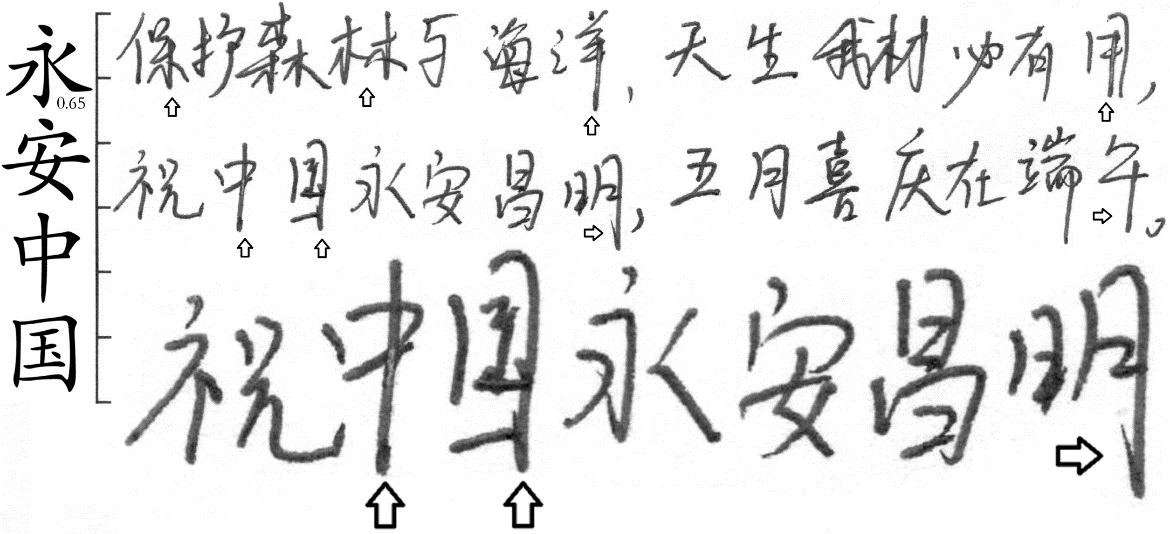 永安中国
0.65
保护森林与海洋，天生我材必有用，
祝中国永安昌明，五月喜庆在端午。
祝中国永安昌明